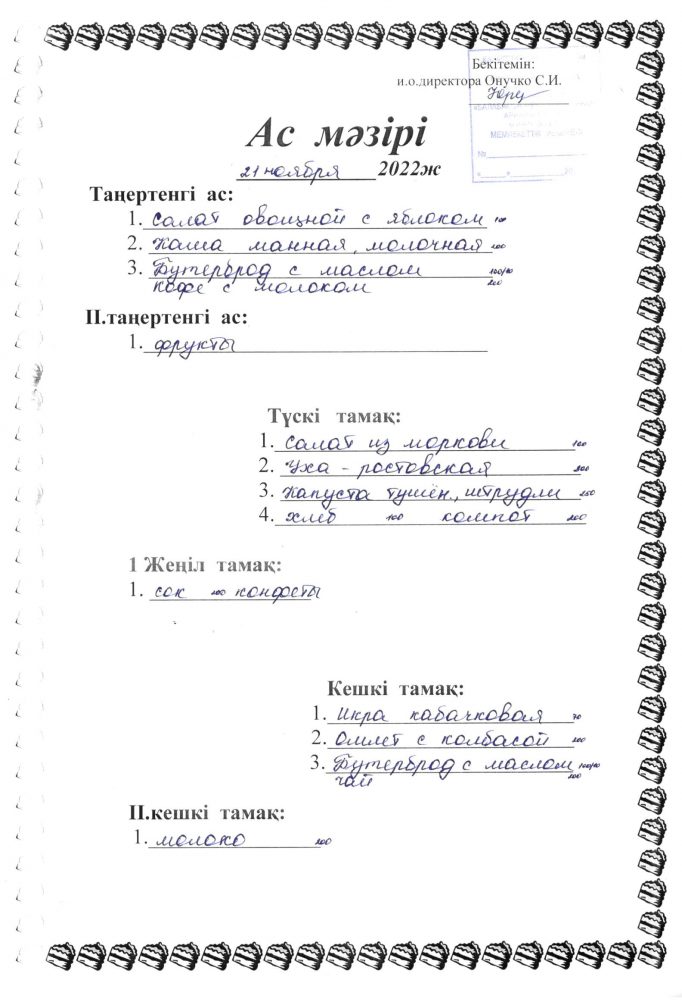 Бекітемін:
и.о.директора Онучко С.И.
МЕМЛЕКЕТТІК
№
Ас мәзірі
21 ноября 2022ж
Таңертенгі ас:
1. Салат овощной с яблоком 100
2. Каша манная, молочная 200
3. Бутерброд с маслом 100/10
кофе с молоком 200
II.таңертенгі ас:
1. фрукты
Түскі тамақ:
1. Салат из моркови 100
2. Уха - ростовская
3. Капуста тушён., штрудли 250
4. хлеб 100 компот 200
1 Жеңіл тамақ:
1. сок 200 конфеты
Кешкі тамақ:
1. Икра кабачковая 70
2. Омлет с колбасой 200
3. Бутерброд с маслом 100/10
чай 200
II.кешкі тамақ:
1. молоко 200